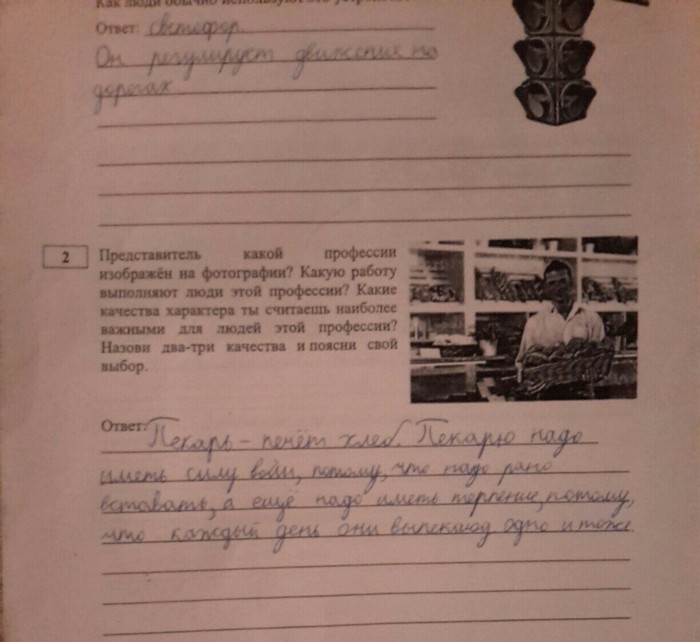 Как люди обычно используют это устройство?
Ответ: светофор.
Он регулирует движение на
дорогах.
2
Представитель какой профессии
изображён на фотографии? Какую работу
выполняют люди этой профессии? Какие
качества характера ты считаешь наиболее
важными для людей этой профессии?
Назови два-три качества и поясни свой
выбор.
Ответ: Пекарь – печёт хлеб. Пекарю надо
иметь силу воли, потому, что надо рано
вставать, а ещё надо иметь терпение, потому,
что каждый день они выпекают одно и тоже